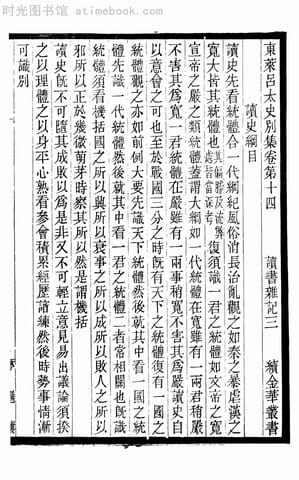 时光图书馆 · atimebook.com
東萊呂太史別集卷第十四　讀書雜記三　續金華叢書
讀史綱目
讀史先看統體合一代綱紀風俗消長治亂觀之如秦之暴虐漢之
寬大皆其統體也復須識一君統體如文帝之寬
宣帝之嚴之類統體蓋謂大綱如一代統體在寬雖有一兩君稍嚴
不害其爲寬一君統體在嚴雖有一兩事稍寬不害其爲嚴讀史自
以意會之可也至於戰國三分之時旣有天下之統體復有一國之
統體觀之亦如前例大要先識天下統體然後就其中看一國之統
體先識一代統體然後就其中看一君之統體二者常相關也旣識
統體須看機括國之所以興所以衰事之所以成所以敗人之所以
邪所以正於幾微萌芽時察其所以然是謂機括
讀史旣不可隨其成敗以爲是非又不可輕立意見易出議論須揆
之以理體之以身平心熟看參會積累經歷諳練然後時勢事情漸
可識別